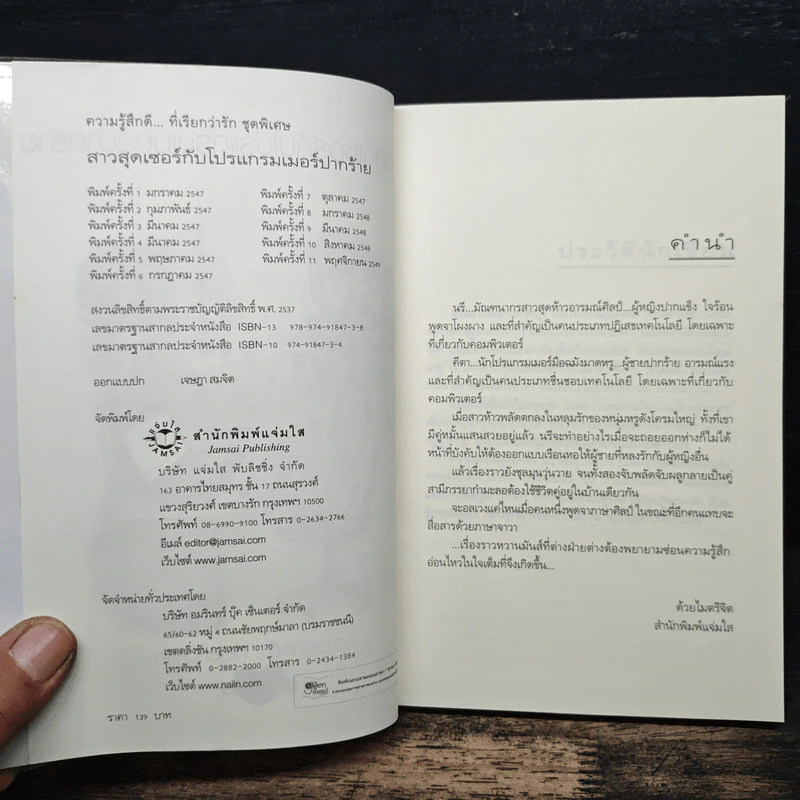 ความรู้สึกดี... ที่เรียกว่ารัก ชุดพิเศษ
สาวสุดเซอร์กับโปรแกรมเมอร์ปากร้าย
พิมพ์ครั้งที่ 1 มกราคม 2547
พิมพ์ครั้งที่ 2 กุมภาพันธ์ 2547
พิมพ์ครั้งที่ 3 มีนาคม 2547
พิมพ์ครั้งที่ 4 มีนาคม 2547
พิมพ์ครั้งที่ 5 พฤษภาคม 2547
พิมพ์ครั้งที่ 6 กรกฎาคม 2547
พิมพ์ครั้งที่ 7 ตุลาคม 2547
พิมพ์ครั้งที่ 8 มกราคม 2548
พิมพ์ครั้งที่ 9 มีนาคม 2548
พิมพ์ครั้งที่ 10 สิงหาคม 2548
พิมพ์ครั้งที่ 11 พฤศจิกายน 2549
สงวนลิขสิทธิ์ตามพระราชบัญญัติลิขสิทธิ์ พ.ศ. 2537
เลขมาตรฐานสากลประจำหนังสือ ISBN-13 978-974-91847-3-8
เลขมาตรฐานสากลประจำหนังสือ ISBN-10 974-91847-3-4
ออกแบบปก เจษฎา สมจิต
จัดพิมพ์โดย
แจ่มใส
JAMSAI
สำนักพิมพ์แจ่มใส
Jamsai Publishing
บริษัท แจ่มใส พับลิชชิ่ง จำกัด
163 อาคารไทยสมุทร ชั้น 17 ถนนสุรวงศ์
แขวงสุริยวงศ์ เขตบางรัก กรุงเทพฯ 10500
โทรศัพท์ 08-6990-9100 โทรสาร 0-2634-2766
อีเมล์ editor@jamsai.com
เว็บไซต์ www.jamsai.com
จัดจำหน่ายทั่วประเทศโดย
บริษัท อมรินทร์ บุ๊ค เซ็นเตอร์ จำกัด
65/60-62 หมู่ 4 ถนนชัยพฤกษ์มาลา (บรมราชชนนี)
เขตตลิ่งชัน กรุงเทพฯ 10170
โทรศัพท์ 0-2882-2000 โทรสาร 0-2434-1384
เว็บไซต์ www.naiin.com
ราคา 139 บาท
คำนำ
นรี...มัณฑนากรสาวสุดห้าวอารมณ์ศิลป์...ผู้หญิงปากแข็ง ใจร้อน
พูดจาโผงผาง และที่สำคัญเป็นคนประเภทปฏิเสธเทคโนโลยี โดยเฉพาะ
ที่เกี่ยวกับคอมพิวเตอร์
คีตา...นักโปรแกรมเมอร์มือฉมังมาดหรู...ผู้ชายปากร้าย อารมณ์แรง
และที่สำคัญเป็นคนประเภทชื่นชอบเทคโนโลยี โดยเฉพาะที่เกี่ยวกับ
คอมพิวเตอร์
เมื่อสาวห้าวพลัดตกลงในหลุมรักของหนุ่มหรูดังโครมใหญ่ ทั้งที่เขา
มีคู่หมั้นแสนสวยอยู่แล้ว นรีจะทำอย่างไรเมื่อจะถอยออกห่างก็ไม่ได้
หน้าที่บังคับให้ต้องออกแบบเรือนหอให้ผู้ชายที่หลงรักกับผู้หญิงอื่น
แล้วเรื่องราวยังชุลมุนวุ่นวาย จนทั้งสองจับพลัดจับผลูกลายเป็นคู่
สามีภรรยากำมะลอต้องใช้ชีวิตคู่อยู่ในบ้านเดียวกัน
จะอลเวงแค่ไหนเมื่อคนหนึ่งพูดจาภาษาศิลป์ ในขณะที่อีกคนแทบจะ
สื่อสารด้วยภาษาจาวา
...เรื่องราวหวานมันส์ที่ต่างฝ่ายต่างต้องพยายามซ่อนความรู้สึก
อ่อนไหวในใจเต็มที่จึงเกิดขึ้น...
ด้วยไมตรีจิต
สำนักพิมพ์แจ่มใส